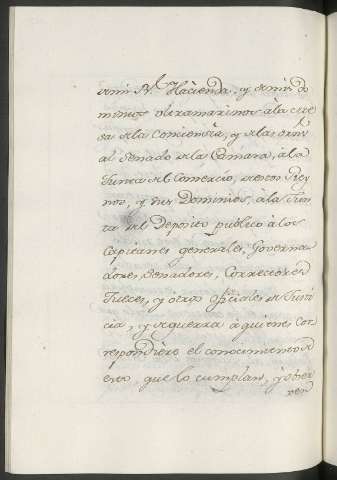 de mi Rl. Hacienda, y de mis do
minios ultramarinos à la cie
de la Conciencia, y
al Senado de la Camara, à la
Junta del Comercio, de estos Rey
nos, y sus Dominios, à la Jun
ta del Depósito publico à los
Capitanes generales, Governa
dores, Senadores, Corregidores
Jueces, y otros oficiales de Justi
cia, y de guerra à quienes cor
respondière el conocimiento de
esto, que lo cumplan, y obser
ven